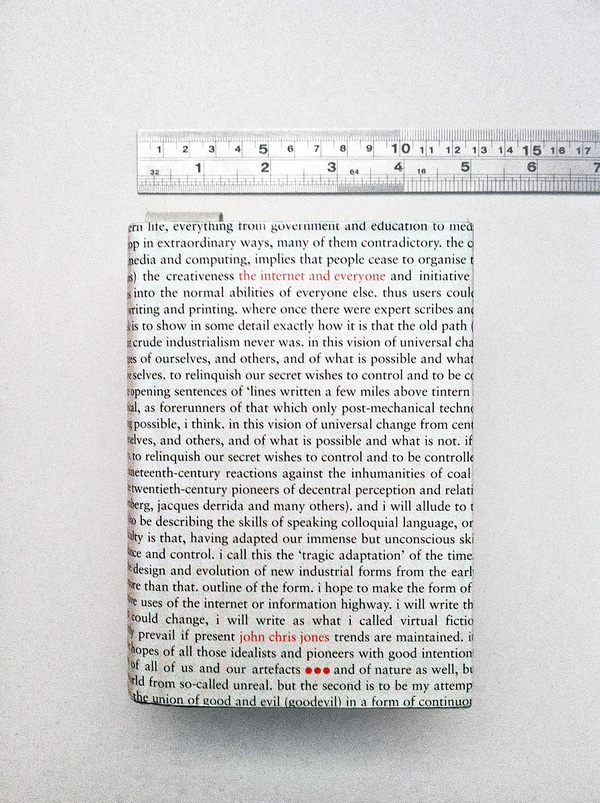 1 2 3 4 5 6 7 8 9 10 11 12 13 14 15 16 17
32 1 2 3 64 4 16 5 6 7
ern life, everything from government and education to med
op in extraordinary ways, many of them contradictory. the c
media and computing, implies that people cease to organise t
s) the creativeness the internet and everyone and initiative
s into the normal abilities of everyone else. thus users coul
writing and printing. where once there were expert scribes an
is to show in some detail exactly how it is that the old path (
crude industrialism never was. in this vision of universal cha
es of ourselves, and others, and of what is possible and what
selves. to relinquish our secret wishes to control and to be co
opening sentences of ‘lines written a few miles above tintern
al, as forerunners of that which only post-mechanical techn
possible, i think. in this vision of universal change from cent
elves, and others, and of what is possible and what is not. if
to relinquish our secret wishes to control and to be controlle
nineteenth-century reactions against the inhumanities of coal
twentieth-century pioneers of decentral perception and relati
nberg, jacques derrida and many others). and i will allude to t
o be describing the skills of speaking colloquial language, or
alty is that, having adapted our immense but unconscious ski
nce and control. i call this the ‘tragic adaptation’ of the time
design and evolution of new industrial forms from the earl
re than that. outline of the form. i hope to make the form of
e uses of the internet or information highway. i will write th
could change, i will write as what i called virtual fictio
y prevail if present john chris jones trends are maintained. i
hopes of all those idealists and pioneers with good intention
of all of us and our artefacts ●●● and of nature as well, bu
rld from so-called unreal. but the second is to be my attemp
the union of good and evil (goodevil) in a form of continuou